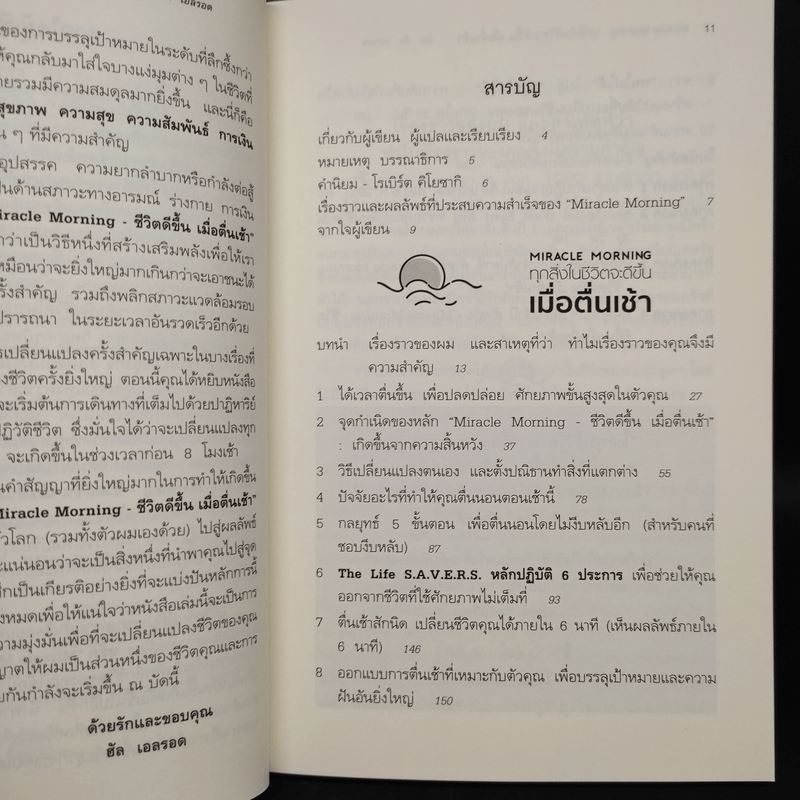 เอลรอด
ของการบรรลุเป้าหมายในระดับที่ลึกซึ้งกว่า
ห้คุณกลับมาใส่ใจบางแง่มุมต่าง ๆ ในชีวิตที่
ายรวมมีความสมดุลมากยิ่งขึ้น และนี่ก็คือ
สุขภาพ ความสุข ความสัมพันธ์ การเงิน
น ๆ ที่มีความสำคัญ
อุปสรรค ความยากลำบากหรือกำลังต่อสู้
ป็นด้านสภาวะทางอารมณ์ ร่างกาย การเงิน
Miracle Morning - ชีวิตดีขึ้น เมื่อตื่นเช้า"
กว่าเป็นวิธีหนึ่งที่สร้างเสริมพลังเพื่อให้เรา
หมือนว่าจะยิ่งใหญ่มากเกินกว่าจะเอาชนะได้
รั้งสำคัญ รวมถึงพลิกสภาวะแวดล้อมรอบ
ปรารถนา ในระยะเวลาอันรวดเร็วอีกด้วย
รเปลี่ยนแปลงครั้งสำคัญเฉพาะในบางเรื่องที่
งชีวิตครั้งยิ่งใหญ่ ตอนนี้คุณได้หยิบหนังสือ
จะเริ่มต้นการเดินทางที่เต็มไปด้วยปาฏิหาริย์
ปฏิวัติชีวิต ซึ่งมั่นใจได้ว่าจะเปลี่ยนแปลงทุก
จะเกิดขึ้นในช่วงเวลาก่อน 8 โมงเช้า
นคำสัญญาที่ยิ่งใหญ่มากในการทำให้เกิดขึ้น
Miracle Morning - ชีวิตดีขึ้น เมื่อตื่นเช้า"
ั่วโลก (รวมทั้งตัวผมเองด้วย) ไปสู่ผลลัพธ์
ะแน่นอนว่าจะเป็นสิ่งหนึ่งที่นำพาคุณไปสู่จุด
ึกเป็นเกียรติอย่างยิ่งที่จะแบ่งปันหลักการนี้
งหมดเพื่อให้แน่ใจว่าหนังสือเล่มนี้จะเป็นการ
วามมุ่งมั่นเพื่อที่จะเปลี่ยนแปลงชีวิตของคุณ
ญาตให้ผมเป็นส่วนหนึ่งของชีวิตคุณและการ
ยกันกำลังจะเริ่มขึ้น ณ บัดนี้
ด้วยรักและขอบคุณ
ฮัล เอลรอด
11
สารบัญ
เกี่ยวกับผู้เขียน ผู้แปลและเรียบเรียง 4
หมายเหตุ บรรณาธิการ 5
คำนิยม - โรเบิร์ต คิโยซากิ 6
เรื่องราวและผลลัพธ์ที่ประสบความสำเร็จของ "Miracle Morning" 7
จากใจผู้เขียน 9
MIRACLE MORNING
ทุกสิ่งในชีวิตจะดีขึ้น
เมื่อตื่นเช้า
บทนำ เรื่องราวของผม และสาเหตุที่ว่า ทำไมเรื่องราวของคุณจึงมี
ความสำคัญ 13
1 ได้เวลาตื่นขึ้น เพื่อปลดปล่อย ศักยภาพขั้นสูงสุดในตัวคุณ 27
2 จุดกำเนิดของหลัก "Miracle Morning - ชีวิตดีขึ้น เมื่อตื่นเช้า"
: เกิดขึ้นจากความสิ้นหวัง 37
3 วิธีเปลี่ยนแปลงตนเอง และตั้งปณิธานทำสิ่งที่แตกต่าง 55
4 ปัจจัยอะไรที่ทำให้คุณตื่นนอนตอนเช้านี้ 78
5 กลยุทธ์ 5 ขั้นตอน เพื่อตื่นนอนโดยไม่งีบหลับอีก (สำหรับคนที่
ชอบงีบหลับ) 87
6 The Life S.A.V.E.R.S. หลักปฏิบัติ 6 ประการ เพื่อช่วยให้คุณ
ออกจากชีวิตที่ใช้ศักยภาพไม่เต็มที่ 93
7 ตื่นเช้าสักนิด เปลี่ยนชีวิตคุณได้ภายใน 6 นาที (เห็นผลลัพธ์ภายใน
6 นาที) 146
8 ออกแบบการตื่นเช้าที่เหมาะกับตัวคุณ เพื่อบรรลุเป้าหมายและความ
ฝันอันยิ่งใหญ่ 150